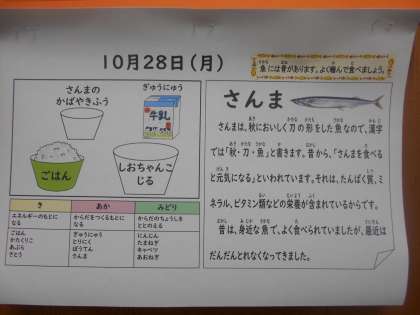 10月28日(月)
魚には骨があります。よく噛んで食べましょう。
さんまの
かばやきふう
ぎゅうにゅう
牛乳
ごはん
しおちゃんこ
じる
き
あか
みどり
エネルギーのもとに
なる
からだをつくるもとに
なる
からだのちょうしを
ととのえる
ごはん
かたくりこ
あぶら
さとう
ぎゅうにゅう
とりにく
ぼうてん
さんま
にんじん
たまねぎ
キャベツ
あおねぎ
さんま
さんまは、秋においしく刀の形をした魚なので、漢字
では「秋・刀・魚」と書きます。昔から、「さんまを食べる
と元気になる」といわれています。それは、たんぱく質、ミ
ネラル、ビタミン類などの栄養が含まれているからです。
昔は、身近な魚で、よく食べられていましたが、最近は
だんだんとれなくなってきました。